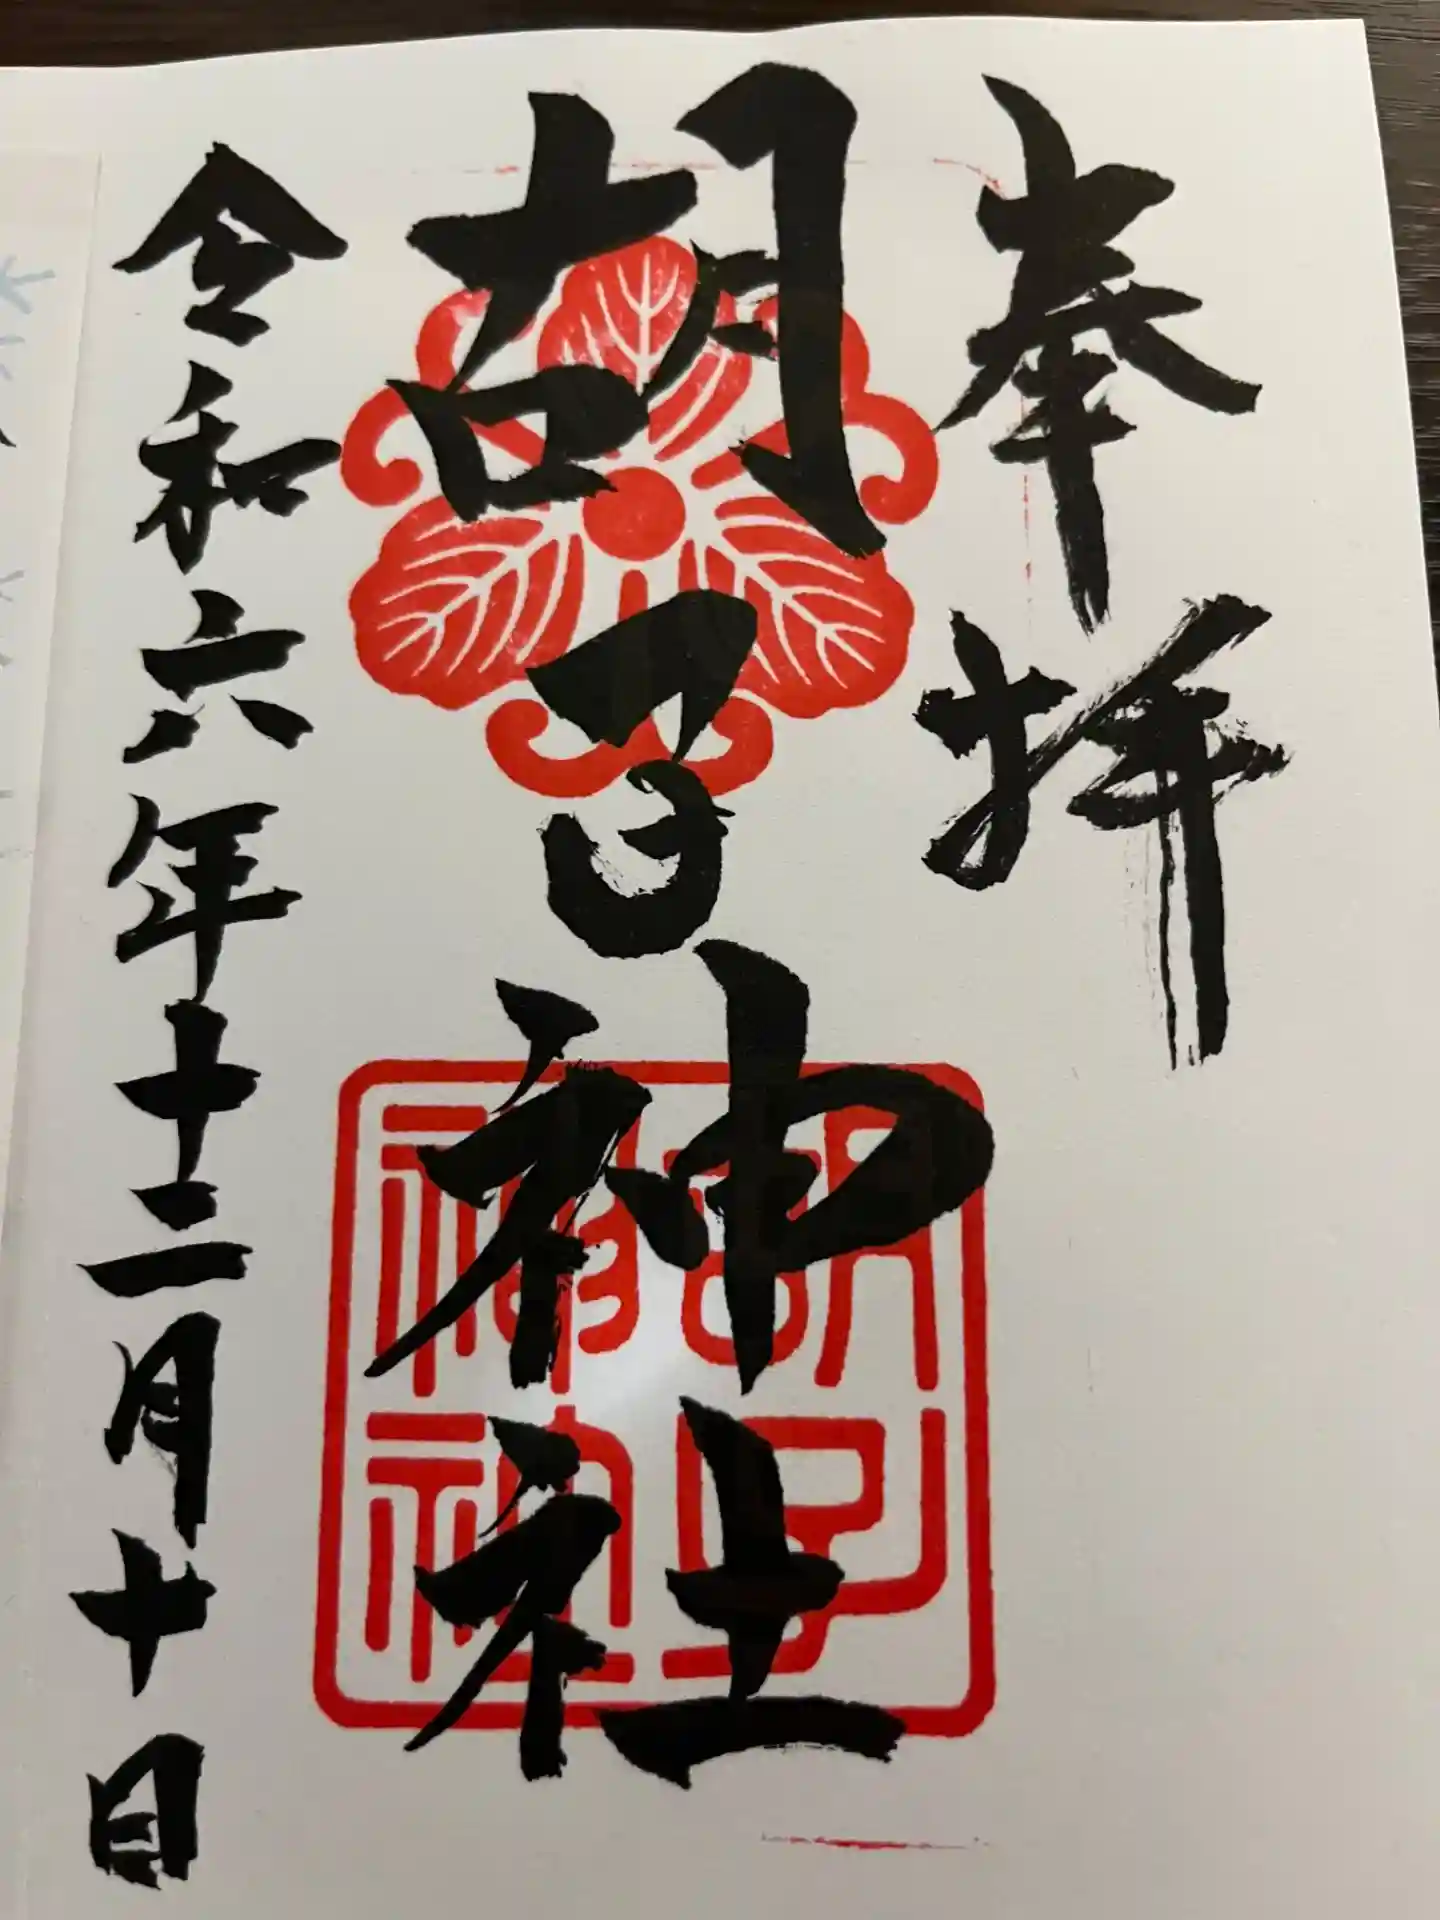 奉拝
胡子神社
令和六年十二月十日
胡子
神社